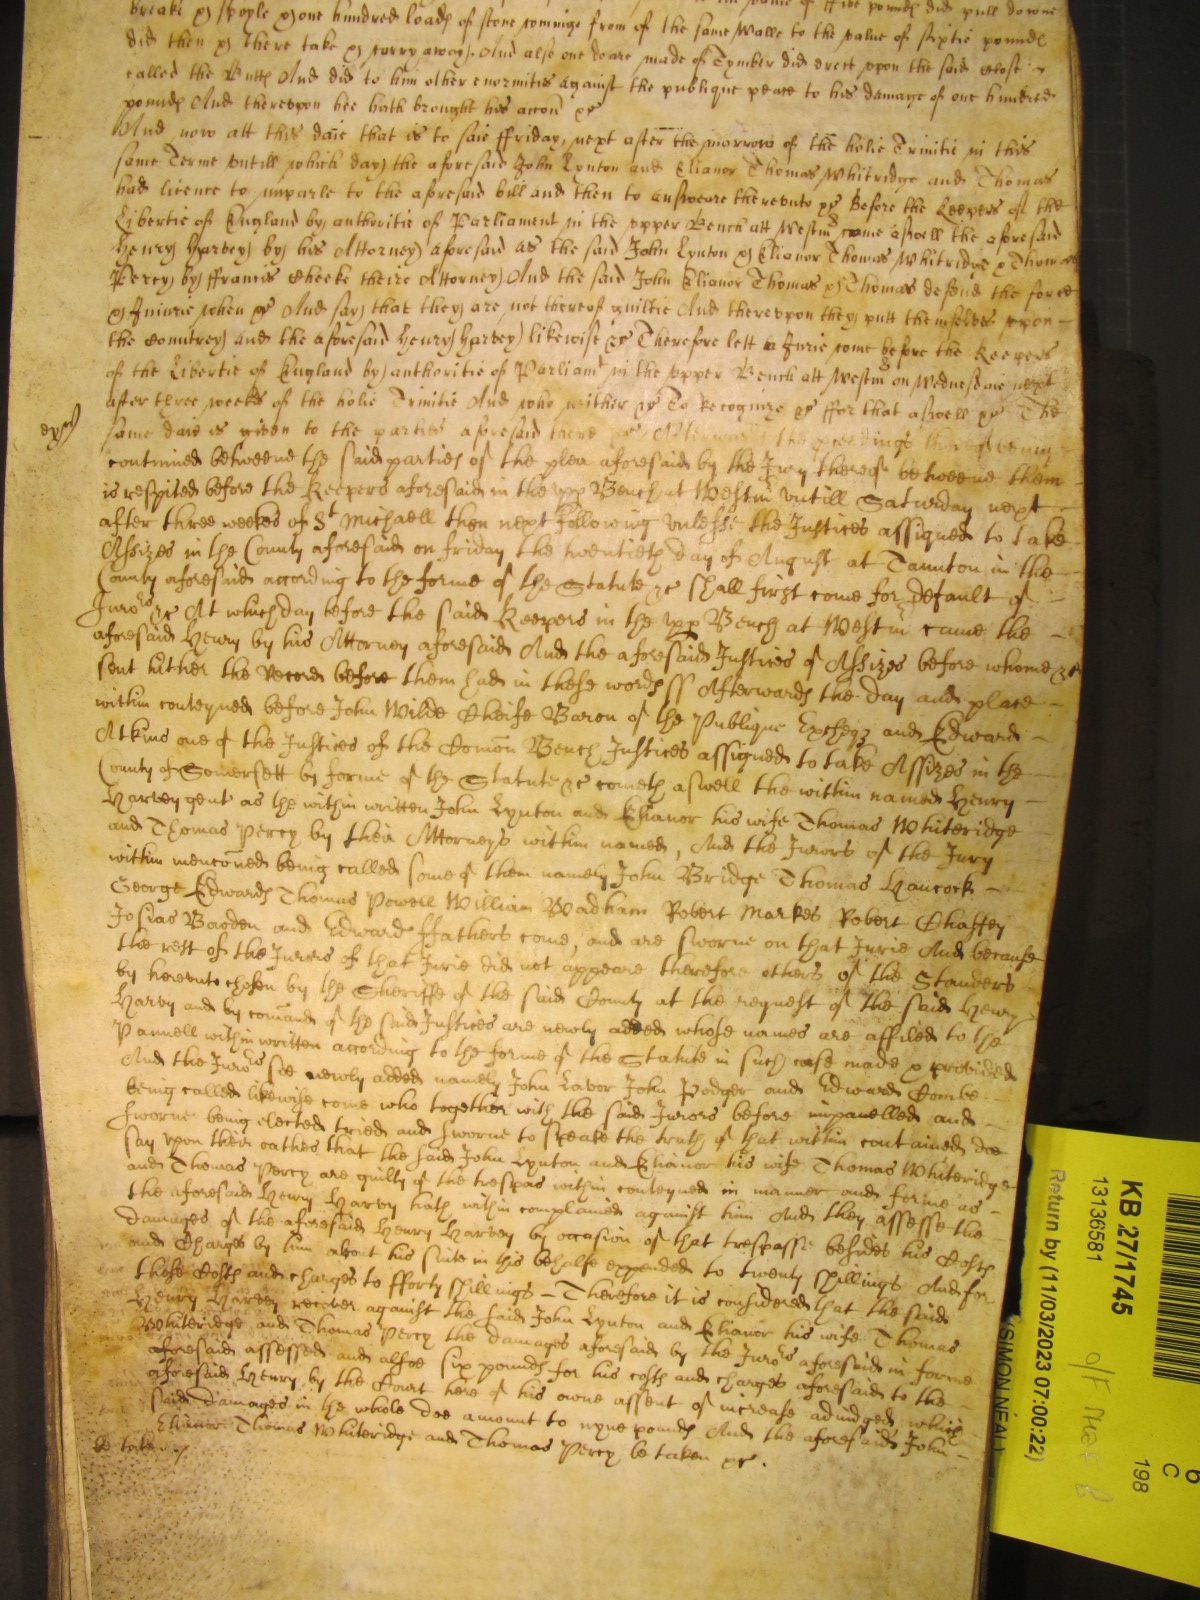 breake & spoyle & one hundred loads of stone comings from of the same Walls to the value of sixtie pounds
did then & there take & carry away. And also one doare made of Tymber did erect upon the said close
called the Butts And did to him other enormities against the publique peace to his damage of one hundred
pounds And thereupon hee hath brought his accon &c
And now att this daie that is to saie ffriday next after the morrow of the holie Trinitie in this
same Terme untill which day the aforesaid John Lynton and Elianor Thomas Whitridge and Thomas
had licence to imparle to the aforesaid bill and then to answeare thereunto &c Before the Keepers of the
Libertie of England by authoritie of Parliament in the upper Bench att Westm̃ come aswell the aforesaid
Henry Harvey by his Attorney aforesaid as the said John Lynton & Elianor Thomas Whitridge & Thomas
Percy by ffrancis Cheeke theire Attorney And the said John Elianor Thomas & Thomas defend the force
& Iniurie when &c And say that they are not thereof guiltie And thereupon they putt themselves upon
the Countrey and the aforesaid Henry Harvey likewise &c Therefore lett a Jurie come before the Keepers
of the Libertie of England by authoritie of Parliamt in the upper Bench att Westm̃ on Wednesdaie next
after three weekes of the holie Trinitie And who neither &c To Recognize &c ffor that aswell &c The
same daie is given to the parties aforesaid there &c Afterwards the proceedings thereof being
continued betweene the said parties of the plea aforesaid by the Jury thereof betweene them
is respited before the Keepers aforesaid in the upp Bench at Westm̃ untill Saturday next
after three weekes of St Michaell then next following unlesse the Justices assigned to take
Assizes in the County aforesaid on friday the twentieth day of August at Taunton in the
County aforesaid according to the forme of the Statute &c shall first come for default of
Jurors &c At which day before the said Keepers in the upp Bench at Westm̃ came the
aforesaid Henry by his Attorney aforesaid And the aforesaid Justices of Assizes before whome &c
sent hither the Record before them had in these words ss Afterwards the day and place
within conteyned before John Wilde Cheife Baron of the Publique Excheqʒ and Edward
Atkins one of the Justices of the Comon Bench Justices assigned to take Assizes in the
County of Somersett by forme of the Statute &c cometh aswell the within named Henry
Harvey gent as the within written John Lynton and Elianor his wife Thomas Whiteridge
and Thomas Percy by their Attorneys within named, And the Jurors of the Jury
within menconed being called some of them namely John Bridge Thomas Hancock
George Edwards Thomas Powell William Wadham Robert Markes Robert Chaffey
Josias and Edward ffathers come, and are sworne on that Jurie And because
the rest of the Jurors of that Jurie did not appeare therefore others of the Standers
by hereunto chosen by the Sheriffe of the said County at the request of the said Henry
Harvy and by comand of the said Justices are newly added whose names are affiled to the
Pannell within written according to the forme of the Statute in such case made & provided
And the Jurors soe newly added namely John Lavor John Podger and Edward Combe
being called likewise come who together with the said Jurors before impanelled and
sworne being elected tried and sworne to speake the truth of that within contained doe
say upon their oathes that the said John Lynton and Elianor his wife Thomas Whiteridge
and Thomas Percy are guilty of the trespas within conteyned in manner and forme as
the aforesaid Henry Harvey hath within complained against him And they assesse the
damages of the aforesaid Henry Harvey by occasion of that trespasse besides his Costs
and Charges by him about his suite in this behalfe expended to twenty shillings And for
those Costs and charges to fforty shillings Therefore it is considered that the said
Henry Harvey recover against the said John Lynton and Elianor his wife Thomas
Whiteridge and Thomas Percy the damages aforesaid by the Jurors aforesaid in forme
aforesaid assessed and alsoe six pounds for his costs and charges aforesaid to the
aforesaid Henry by the Court here of his owne assent of increase adiudged which
said damages in the whole doe amount to nyne pounds And the aforesaid John
Elianor Thomas Whiteridge and Thomas Percy be taken &c.
be taken
KB 27/1745
13136581
Return by (11/03/2023 07:00:22)
(SIMON NEAL)
6
C
198